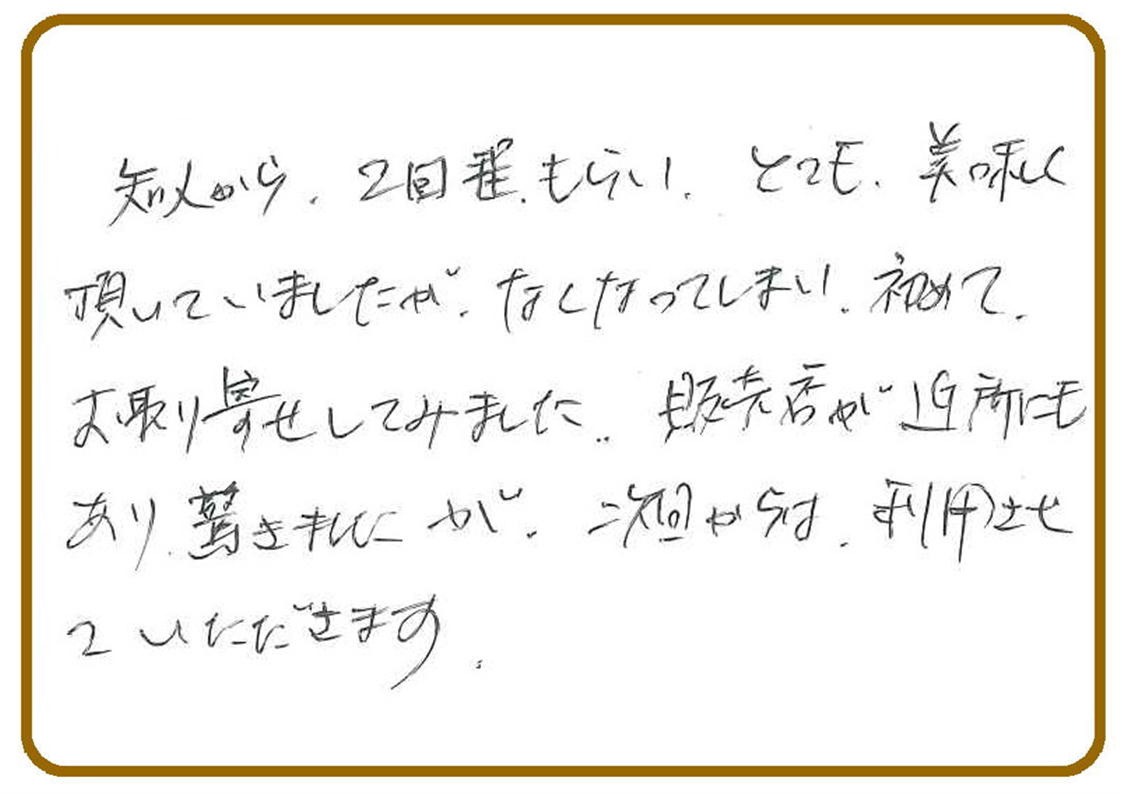 知人から、2回程、もらい、とても、美味しく
頂いていましたが、なくなってしまい、初めて、
お取り寄せしてみました。販売店が近所にも
あり、驚きましたが、次回からは、利用させ
ていただきます。